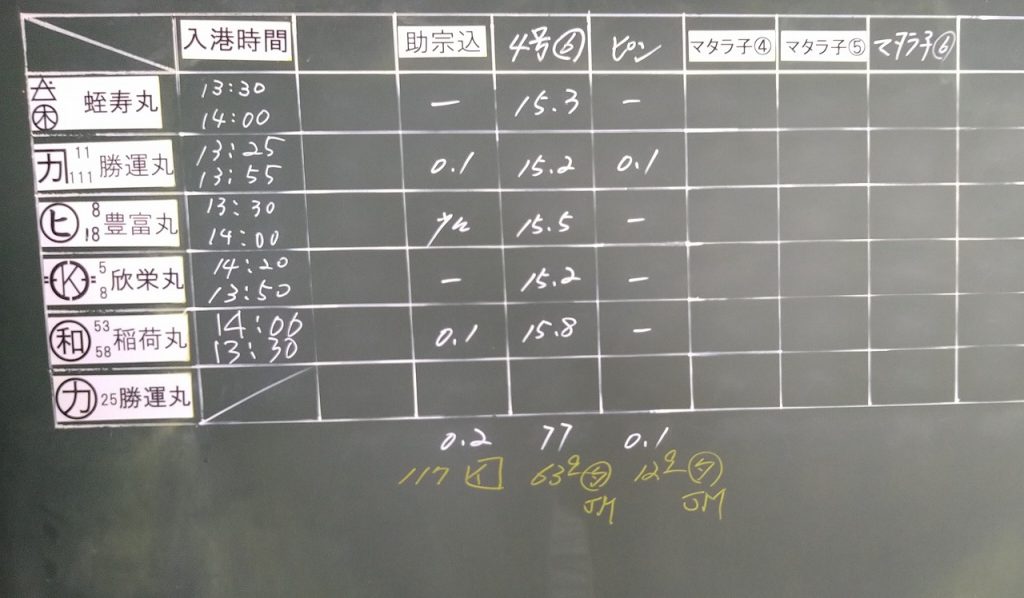 入港時間 助宗込 4号⑥ ピン マタラ子④ マタラ子⑤ マタラ子⑥
蛭寿丸 13:30 14:00 ー 15.3 ー
力 11 111 勝運丸 13:25 13:55 0.1 15.2 0.1
ヒ 8 18 豊富丸 13:30 14:00 少々 15.5 ー
K 5 8 欣栄丸 14:20 13:50 ー 15.2 ー
和 53 58 稲荷丸 14:00 13:30 0.1 15.8 ー
力 25 勝運丸
0.2 77 0.1
117 63 12
JM JM